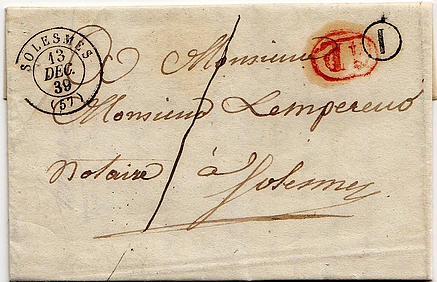 SOLESMES
13
DEC.
39
(57)
1 D
I
Monsieur
Monsieur Lempereur
notaire à
Solesmes